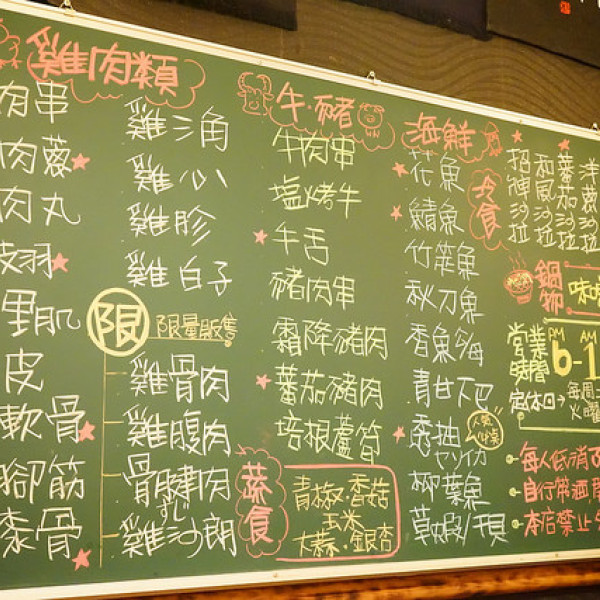 雞肉類
肉串
肉蔥
肉丸
羽
里肌
皮
軟骨
腳筋
骨
雞三角
雞心
雞胗
雞白子
限 限量販售
雞骨肉
雞腹肉
骨腱肉
すじ
雞沙朗
牛.豬
牛肉串
塩烤牛
牛舌
豬肉串
霜降豬肉
蕃茄豬肉
培根蘆筍
蔬食
青椒.香菇
玉米
大蒜.銀杏
海鮮
花魚
鯖魚
竹筴魚
秋刀魚
香魚母
青甘下巴
透抽
ヤリイカ
人氣
柳葉魚
草蝦/干貝
冷食
招牌沙拉
和風沙拉
蕃茄沙拉
洋蔥沙拉
鍋物
味噌
營業時間
PM AM
6-1
定休日→
每周二
火曜
每人低消
自行帶酒
本店禁止